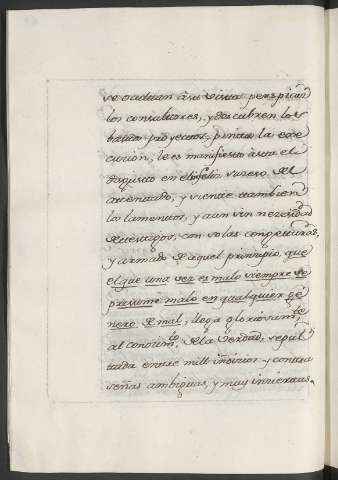 se evaduan à su vista perspicaz
los consultores, y descubren los
bastos proyectos, pinta la exe
cucion, le es manifiesto asta el
disgusto en el infeliz suceso del
atentado, y siente tambien
los lamentos, y aun sin necesidad
de testigos, con solas congeturas,
y armado de aquel principio, que
el que una vez es malo siempre se
presume malo en qualquier gé
nero de mal, llega gloriosam.te
al conocim.to de la verdad, sepul
tada entre mill indicios y contra
señas ambiguas, y muy inciertas,